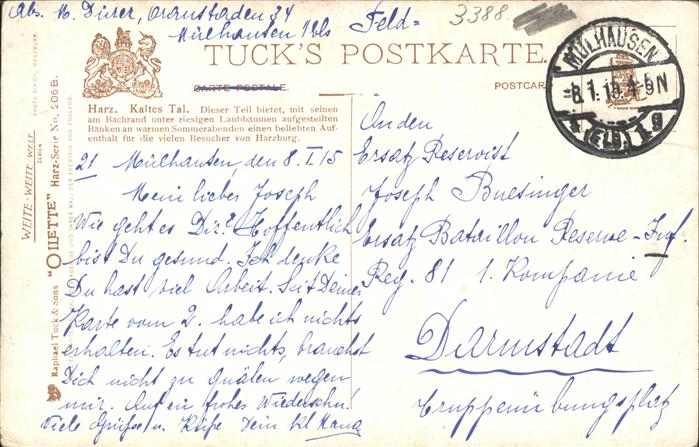 Abs. M. Dürer, Oranstaden 34
Mülhausen i Els
Feld=
3388.
TUCK'S POSTKARTE.
CARTE POSTALE.
POSTCARD
MÜLHAUSEN
(ELS.)
Harz. Kaltes Tal. Dieser Teil bietet, mit seinen
am Bachrand unter riesigen Laubbäumen aufgestellten
Bänken an warmen Sommerabenden einen beliebten Auf-
enthalt für die vielen Besucher von Harzburg.
21 Mülhausen, den 8. I. 15
Mein lieber Joseph
Wie geht es Dir? Hoffentlich
bis Du gesund. Ich denke
Du hast viel Arbeit. Seit Deiner
Karte vom 2. habe ich nichts
erhalten. Es tut nichts, brauchst
Dich nicht zu quälen wegen
mir. Auf ein frohes Wiedersehn!
Viele Grüsse u. Küsse Dein kl.
An den
Ersatz Reservist
Joseph Buesinger
Ersatz Bataillon Reserve-Inf.
Reg. 81 1. Kompanie
Darmstadt
Truppenübungsplatz
Raphael Tuck & Sons "OILETTE" Harz-Serie No. 206 B.
WEITE-WEITE-WELT
SERIEN
PHOTO HARZBURG.